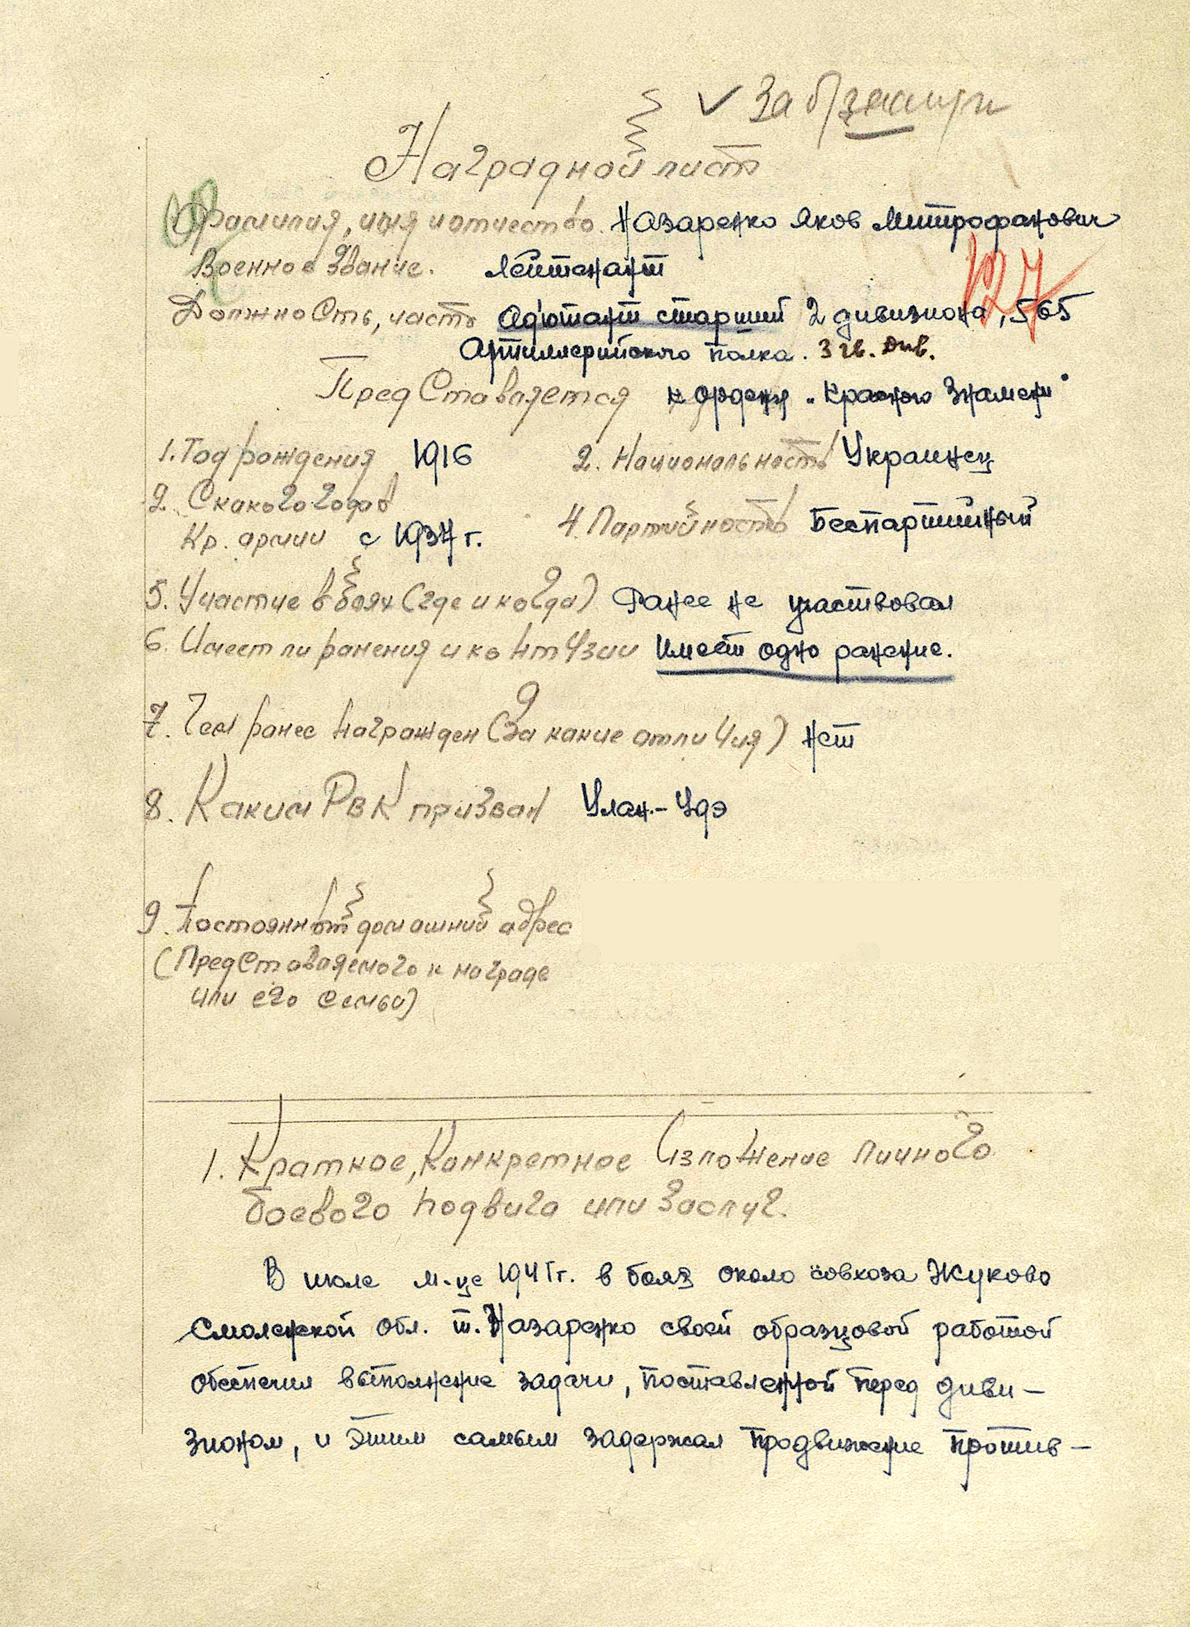 За
Наградной лист
Фамилия, имя и отчество. Назаренко Яков Митрофанович
Военное звание. Лейтенант
127
Должность, часть Адютант старший 2 дивизиона, 565
Артиллерийского полка. 3 гв. див.
Представляется к ордену "Красного Знамени"
1. Год рождения 1916 2. Национальность Украинец
2. С какого года в
Кр. армии с 1937 г. 4. Партийность Беспартийный
5. Участие в боях (где и когда) Ранее не участвовал
6. Имеет ли ранения и контузии Имеет одно ранение.
7. Чем ранее награжден (За какие отличия) нет
8. Каким РВК призван Улан-Удэ
9. Постоянный домашний адрес
(Представляемого к награде
или его семьи)
1. Краткое, Конкретное изложение личного
боевого подвига или заслуг.
В июле м-це 1941 г. в боях около совхоза Жуково
Смоленской обл. т. Назаренко своей образцовой работой
обеспечил выполнение задачи, поставленной перед диви-
зионом, и этим самым задержал продвижение против-